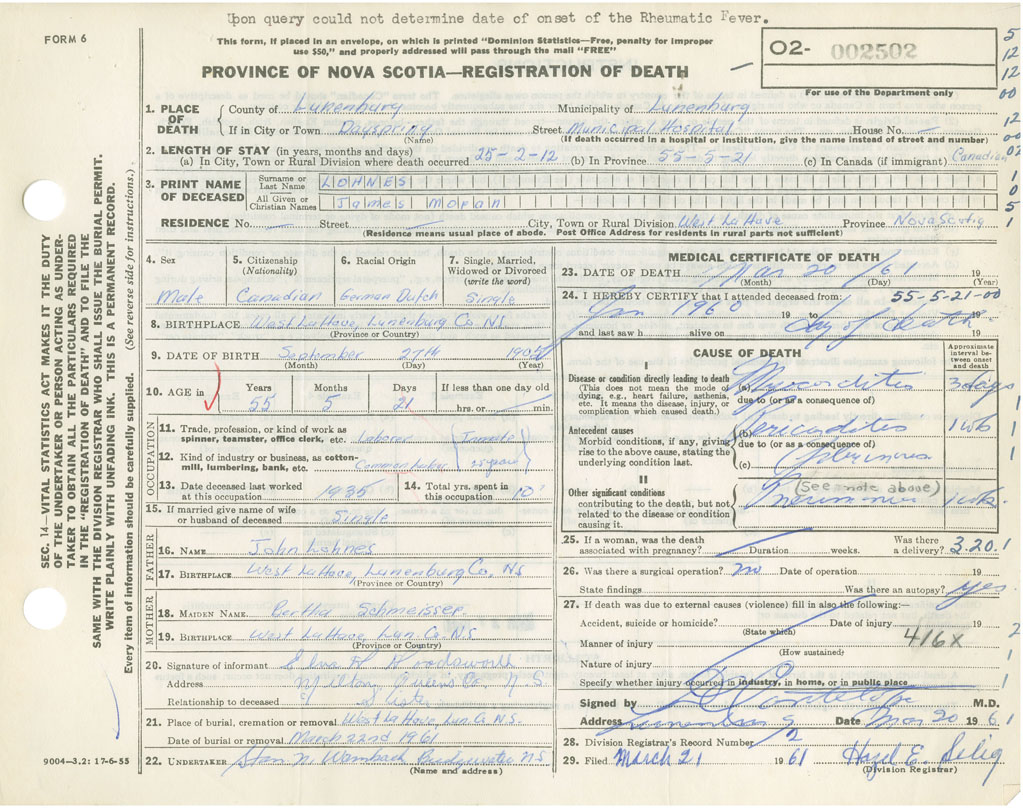 Upon query could not determine date of onset of the Rheumatic Fever.
FORM 6
This form, if placed in an envelope, on which is printed "Dominion Statistics—Free, penalty for improper
use $50," and properly addressed will pass through the mail "FREE"
PROVINCE OF NOVA SCOTIA—REGISTRATION OF DEATH
O2- 002502
For use of the Department only
5
12
12
00
12
00
02
1
0
5
1
1. PLACE OF DEATH { County of Lunenburg Municipality of Lunenburg
If in City or Town Dayspring Street Municipal Hospital House No. —
(Name) (If death occurred in a hospital or institution, give the name instead of street and number)
2. LENGTH OF STAY (in years, months and days)
(a) In City, Town or Rural Division where death occurred 25-2-12 (b) In Province 55-5-21 (c) In Canada (if immigrant) Canadian
3. PRINT NAME OF DECEASED
Surname or Last Name LOHNES
All Given or Christian Names James Moran
RESIDENCE No. — Street — City, Town or Rural Division West La Have Province Nova Scotia
(Residence means usual place of abode. Post Office Address for residents in rural parts not sufficient)
4. Sex
Male
5. Citizenship (Nationality)
Canadian
6. Racial Origin
German Dutch
7. Single, Married, Widowed or Divorced (write the word)
Single
8. BIRTHPLACE West La Have, Lunenburg Co NS
(Province or Country)
9. DATE OF BIRTH September 27th 1905
(Month) (Day) (Year)
10. AGE in Years Months Days If less than one day old
55 5 21 hrs. or min.
OCCUPATION
11. Trade, profession, or kind of work as spinner, teamster, office clerk, etc. Laborer (Inmate
12. Kind of industry or business, as cotton-mill, lumbering, bank, etc. Common Labor 25 years)
13. Date deceased last worked at this occupation 1935
14. Total yrs. spent in this occupation 10
15. If married give name of wife or husband of deceased Single
FATHER
16. NAME John Lohnes
17. BIRTHPLACE West La Have, Lunenburg Co, NS
(Province or Country)
MOTHER
18. MAIDEN NAME Bertha Schmeisser
19. BIRTHPLACE West La Have, Lun. Co. N.S
(Province or Country)
20. Signature of informant Edna K Woodsworth
Address Milton, Queens Co, N.S.
Relationship to deceased Sister
21. Place of burial, cremation or removal West La Have, Lun. Co N.S.
Date of burial or removal March 22nd 1961
22. UNDERTAKER Stan N. Wambach Bridgewater NS
(Name and address)
MEDICAL CERTIFICATE OF DEATH
23. DATE OF DEATH Mar 20 /61 19
(Month) (Day) (Year)
24. I HEREBY CERTIFY that I attended deceased from: 55-5-21-00
Jan 1960 19 to day of death 19
and last saw h alive on 19
CAUSE OF DEATH
Approximate interval between onset and death
I
Disease or condition directly leading to death (This does not mean the mode of dying, e.g., heart failure, asthenia, etc. It means the disease, injury, or complication which caused death.)
(a) Myocarditis 3 days
due to (or as a consequence of)
Antecedent causes
Morbid conditions, if any, giving rise to the above cause, stating the underlying condition last.
(b) Pericarditis 1 wk
due to (or as a consequence of)
(c)
II
Other significant conditions contributing to the death, but not related to the disease or condition causing it.
(See note above)
Pneumonia 1 wk.
25. If a woman, was the death associated with pregnancy? Duration weeks. Was there a delivery? 3.20.1
26. Was there a surgical operation? no Date of operation 19
State findings Was there an autopsy? yes
27. If death was due to external causes (violence) fill in also the following:—
Accident, suicide or homicide? Date of injury 19
(State which)
416X
Manner of injury
(How sustained)
Nature of injury
Specify whether injury occurred in industry, in home, or in public place
Signed by M.D.
Address Lunenburg Date Mar 20 1961
28. Division Registrar's Record Number 12
29. Filed March 21 1961 Hazel E. Selig
(Division Registrar)
SEC. 14—VITAL STATISTICS ACT MAKES IT THE DUTY OF THE UNDERTAKER OR PERSON ACTING AS UNDERTAKER TO OBTAIN ALL THE PARTICULARS REQUIRED IN THE "REGISTRATION OF DEATH" AND TO FILE THE SAME WITH THE DIVISION REGISTRAR WHO SHALL ISSUE THE BURIAL PERMIT.
WRITE PLAINLY WITH UNFADING INK. THIS IS A PERMANENT RECORD.
Every item of information should be carefully supplied. (See reverse side for instructions.)
9004—3.2: 17-6-55